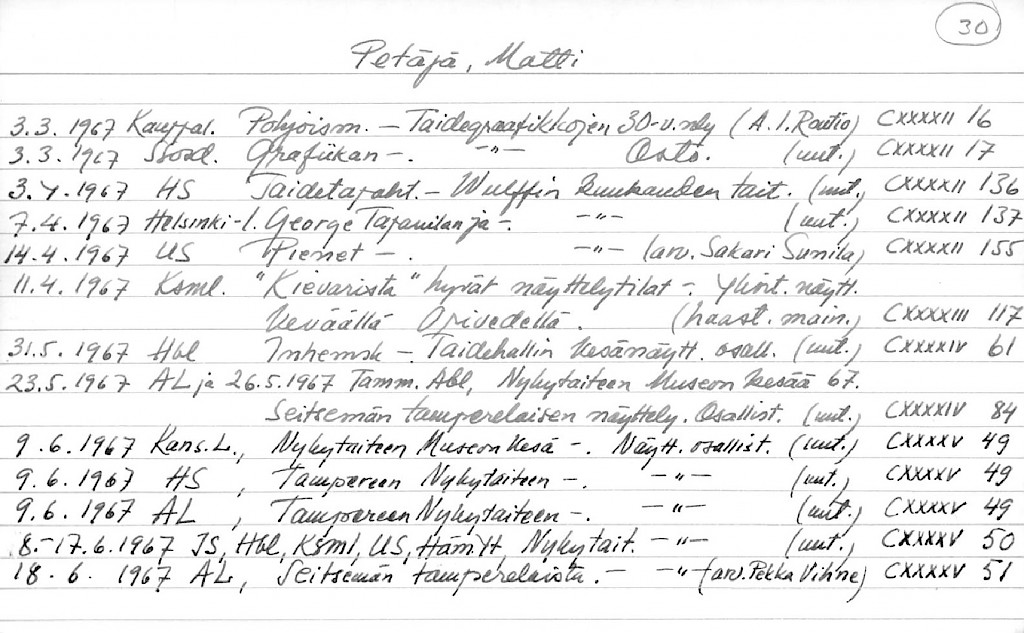 30
Petäjä, Matti
3.3. 1967 Kauppal. Pohjoism. – Taidegraafikkojen 30-v.näy (A.I. Routio) CXXXXII 16
3.3. 1967 Ssosd. Grafiikan –. –"– Osto. (uut.) CXXXXII 17
3.4.1967 HS Taidetapaht. – Wulffin kuukauden tait. (uut.) CXXXXII 136
7.4.1967 Helsinki-l. George Tapanilan ja –. –"– (uut.) CXXXXII 137
14.4.1967 US Pienet –. –"– (arv. Sakari Sunila) CXXXXII 155
11.4.1967 Ksml. "Kievarista" hyvät näyttelytilat –. näytt.
Keväällä Orivedellä. (haast. main.) CXXXXIII 117
31.5.1967 Hbl Inhemsk –. Taidehallin kesänäytt. osall. (uut.) CXXXXIV 61
23.5.1967 AL ja 26.5.1967 Tamm. Abl, Nykytaiteen Museon kesää 67.
Seitsemän tamperelaisen näyttely. Osallist. (uut.) CXXXXIV 84
9.6.1967 Kans.L., Nykytaiteen Museon kesä –. Näytt. osallist. (uut.) CXXXXV 49
9.6.1967 HS, Tampereen Nykytaiteen –. –"– (uut.) CXXXXV 49
9.6.1967 AL, Tampereen Nykytaiteen –. –"– (uut.) CXXXXV 49
8.–17.6.1967 IS, Hbl, Ksml, US, Häm.Yt, Nykytait. –"– (uut.) CXXXXV 50
18.6. 1967 AL, Seitsemän tamperelaista. – –"– (arv. Pekka Vihne) CXXXXV 51